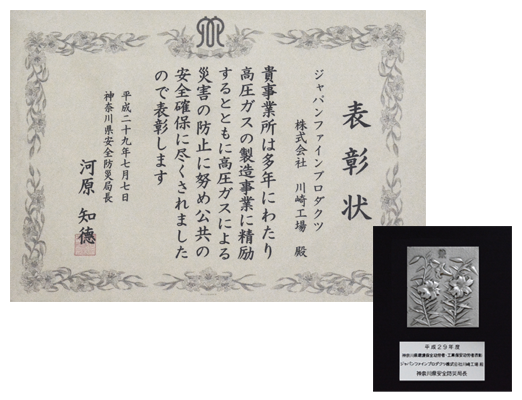 表彰状
ジャパンファインプロダクツ
株式会社 川崎工場 殿
貴事業所は多年にわたり
高圧ガスの製造事業に精励
するとともに高圧ガスによる
災害の防止に努め公共の
安全確保に尽くされました
ので表彰します
平成二十九年七月七日
神奈川県安全防災局長
河原 知德
平成29年度
ジャパンファインプロダクツ株式会社川崎工場 殿
神奈川県安全防災局長